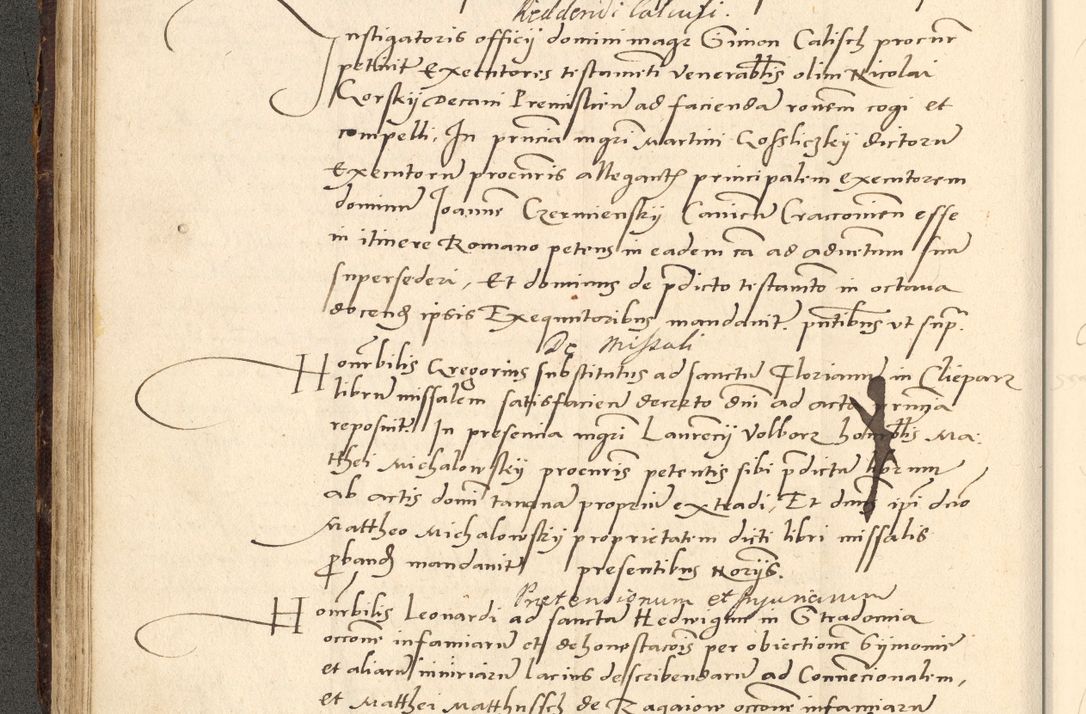 Reddendi Calculi.
Instigatoris officij domini magr Simon Calisch procurr
petiuit Executores testamenti venerabilis olim Nicolai
Gorskij Decani Premislien ad faciendā ronem cogi et
compelli, In prncia mgri Martini Gosliczkij dictorū
Executorū procuris allegantis principalem executorem
dominū Joannē Czermienskij Canicū Cracouien esse
in itinere Romano petens in eadem ca ad aduentum suū
supersederi, Et dominus de pdicto testamto in octaua
docend ipsis Exequutoribus mandauit. pntibus vt supra.
De Missali
Honorbilis Gregorius substitutus ad sanctū Florianū in Cliepar
librū missalem satisfacien decreto dni ad acta prncia
reposuit. In presencia mgri Laurencij Volborz honorabilis Ma:
tthei Michalowskij procuris petentis sibi pdictū librum
ab actis domi tanquā propriū extradi, Et dnus ipi dco
Mattheo Michalowskij proprietatem dicti libri missalis
pband mandauit presentibus Norijs.
Pretensionum et Injuriarum
Honorbilis Leonardi ad sanctā Hedwigim in Stradomia
occone infamiarū et dehonestacois per obiectionē Symonie
et aliarū iniuriarū lacius describendarū ad Conuencionalem,
et Matthei Matthussch de Ragaiow occone infamiarū